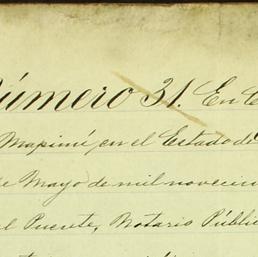 Número 31. En C
Mapimí, en el Estado de
de Mayo de mil novecien
el Puente, Notario Públic